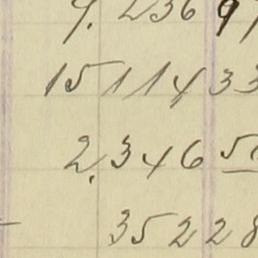 9.23697
1511433
2.34650
35228